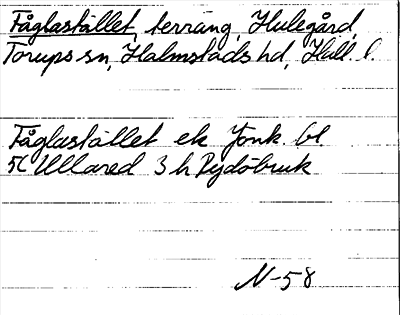 Fåglastället, terräng, Hulegård,
Torups sn, Halmstads hd, Hall. l.
Fåglastället ek Jonk. bl
5C Ullared 3 h Rydöbruk
N-58